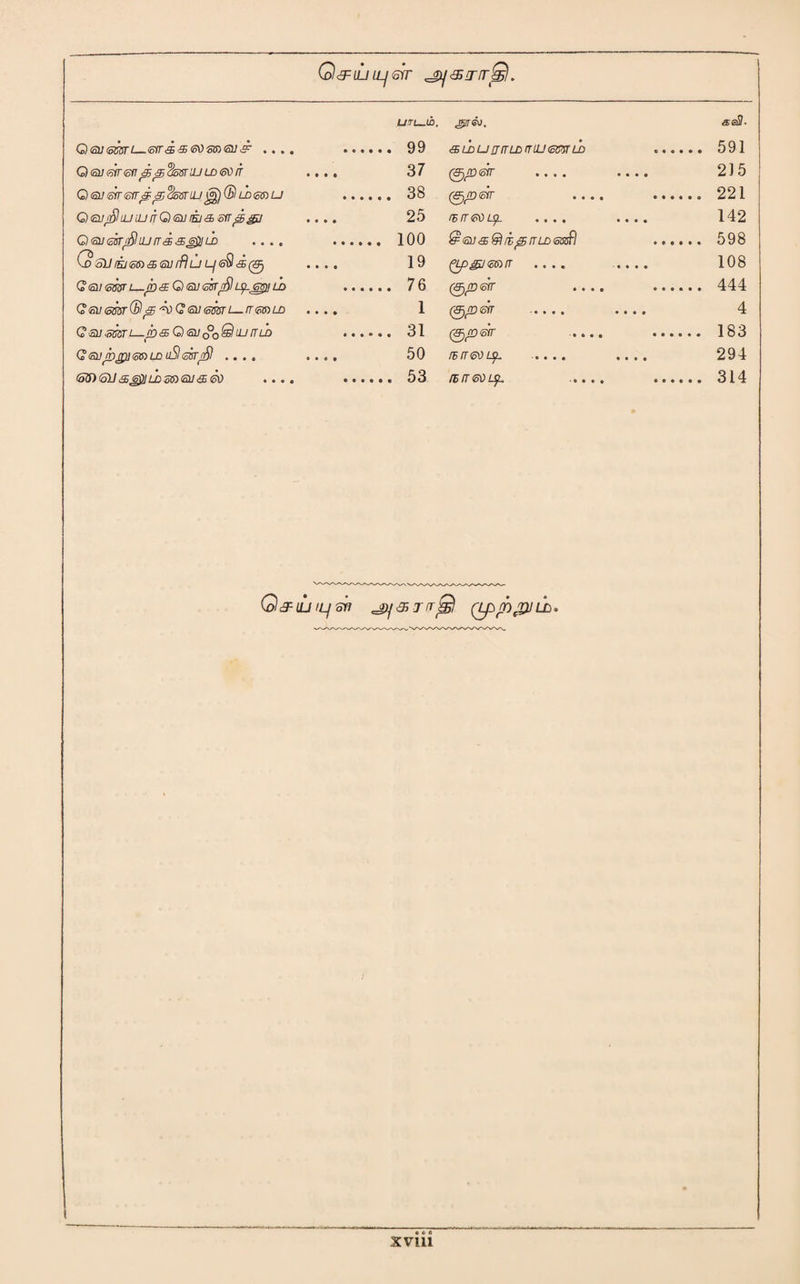 செய்யுள் அகராதி.
பாட்டம். நூல். கவி.
வெண்டளக்கலவைச .... ...... 99 கம்பராமாயணம் ...... 591
வெள்ளத்தனையமலர் .... 37 குறள் .... .... 215
வெள்ளத்தனையஇடும்பை ...... 38 குறள் .... ...... 221
வெறியயார்வெங்களத்து .... 25 நாலடி .... .... 142
வென்றியாக்கதும் .... ...... 100 சீவகசிந்தாமணி ...... 598
வேங்கைவரிப்புலிக்கு .... 19 முதுரை .... .... 108
வேண்டற்கவென்றிடினும் ...... 76 குறள் .... ...... 444
வேண்டுதல்வேண்டாமை .... 1 குறள் .... .... 4
வேண்டற்கவெஃகியாம் ...... 31 குறள் .... ...... 183
வேற்றுமையின்றி .... .... 50 நாலடி .... .... 294
வைகதும்வைகல் .... ...... 53 நாலடி .... ...... 314
செய்யுள் அகராதி முற்றும்.
xviii